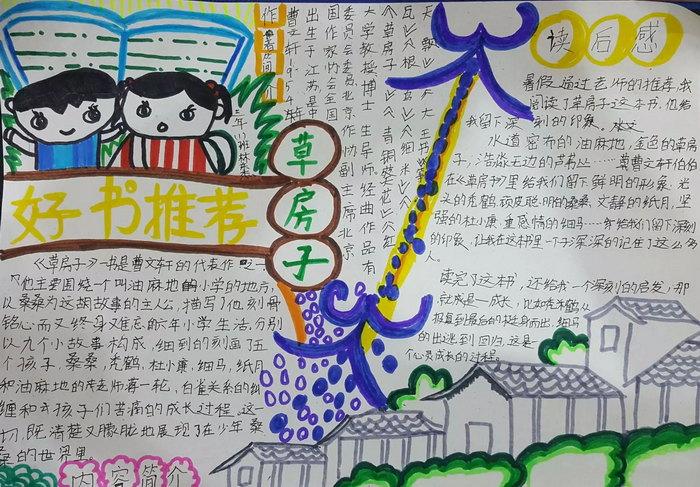 好书推荐
草房子
《草房子》一书是曹文轩的代表作之一
他主要围绕一个叫油麻地的小学的地方,
以桑桑为这胡故事的主人公,描写了他刻骨
铭心而又终身难忘的六年小学生活,分别
以九个小故事构成,细到的刻画了五
个孩子,桑桑,秃鹤,杜小康,细马,纸月
和油麻地的老师蒋一轮,白雀关系的纠
缠和孩子们苦痛的成长过程。这一
切,既清楚又朦胧地展现了在少年桑
桑的世界里。
内容简介
作者简介
曹文轩1954年
出生于江苏
国作家
委员会委员是中
大学教授博士
生导师
读后感
暑假通过老师的推荐,我
阅读了草房子这本书,他给
我留下深刻的印象。
水道密布的油麻地,金色的草房
子,浩淼无边的芦苇丛……曹文轩伯伯
在《草房子》里给我们留下鲜明的形象。光
头的秃鹤,顽皮聪明的桑桑,文静的纸月,坚
强的杜小康,重感情的细马……都给我们留下深刻
的印象,让我在这村里一个子深深的记住了这么多
人。
读完了这本书,还给我一个深刻的启发,那
就成是一成长,比如秃鹤
报复到最后的挺身而出,细马
的出逃到回归,这是一
个心灵成长的过程。